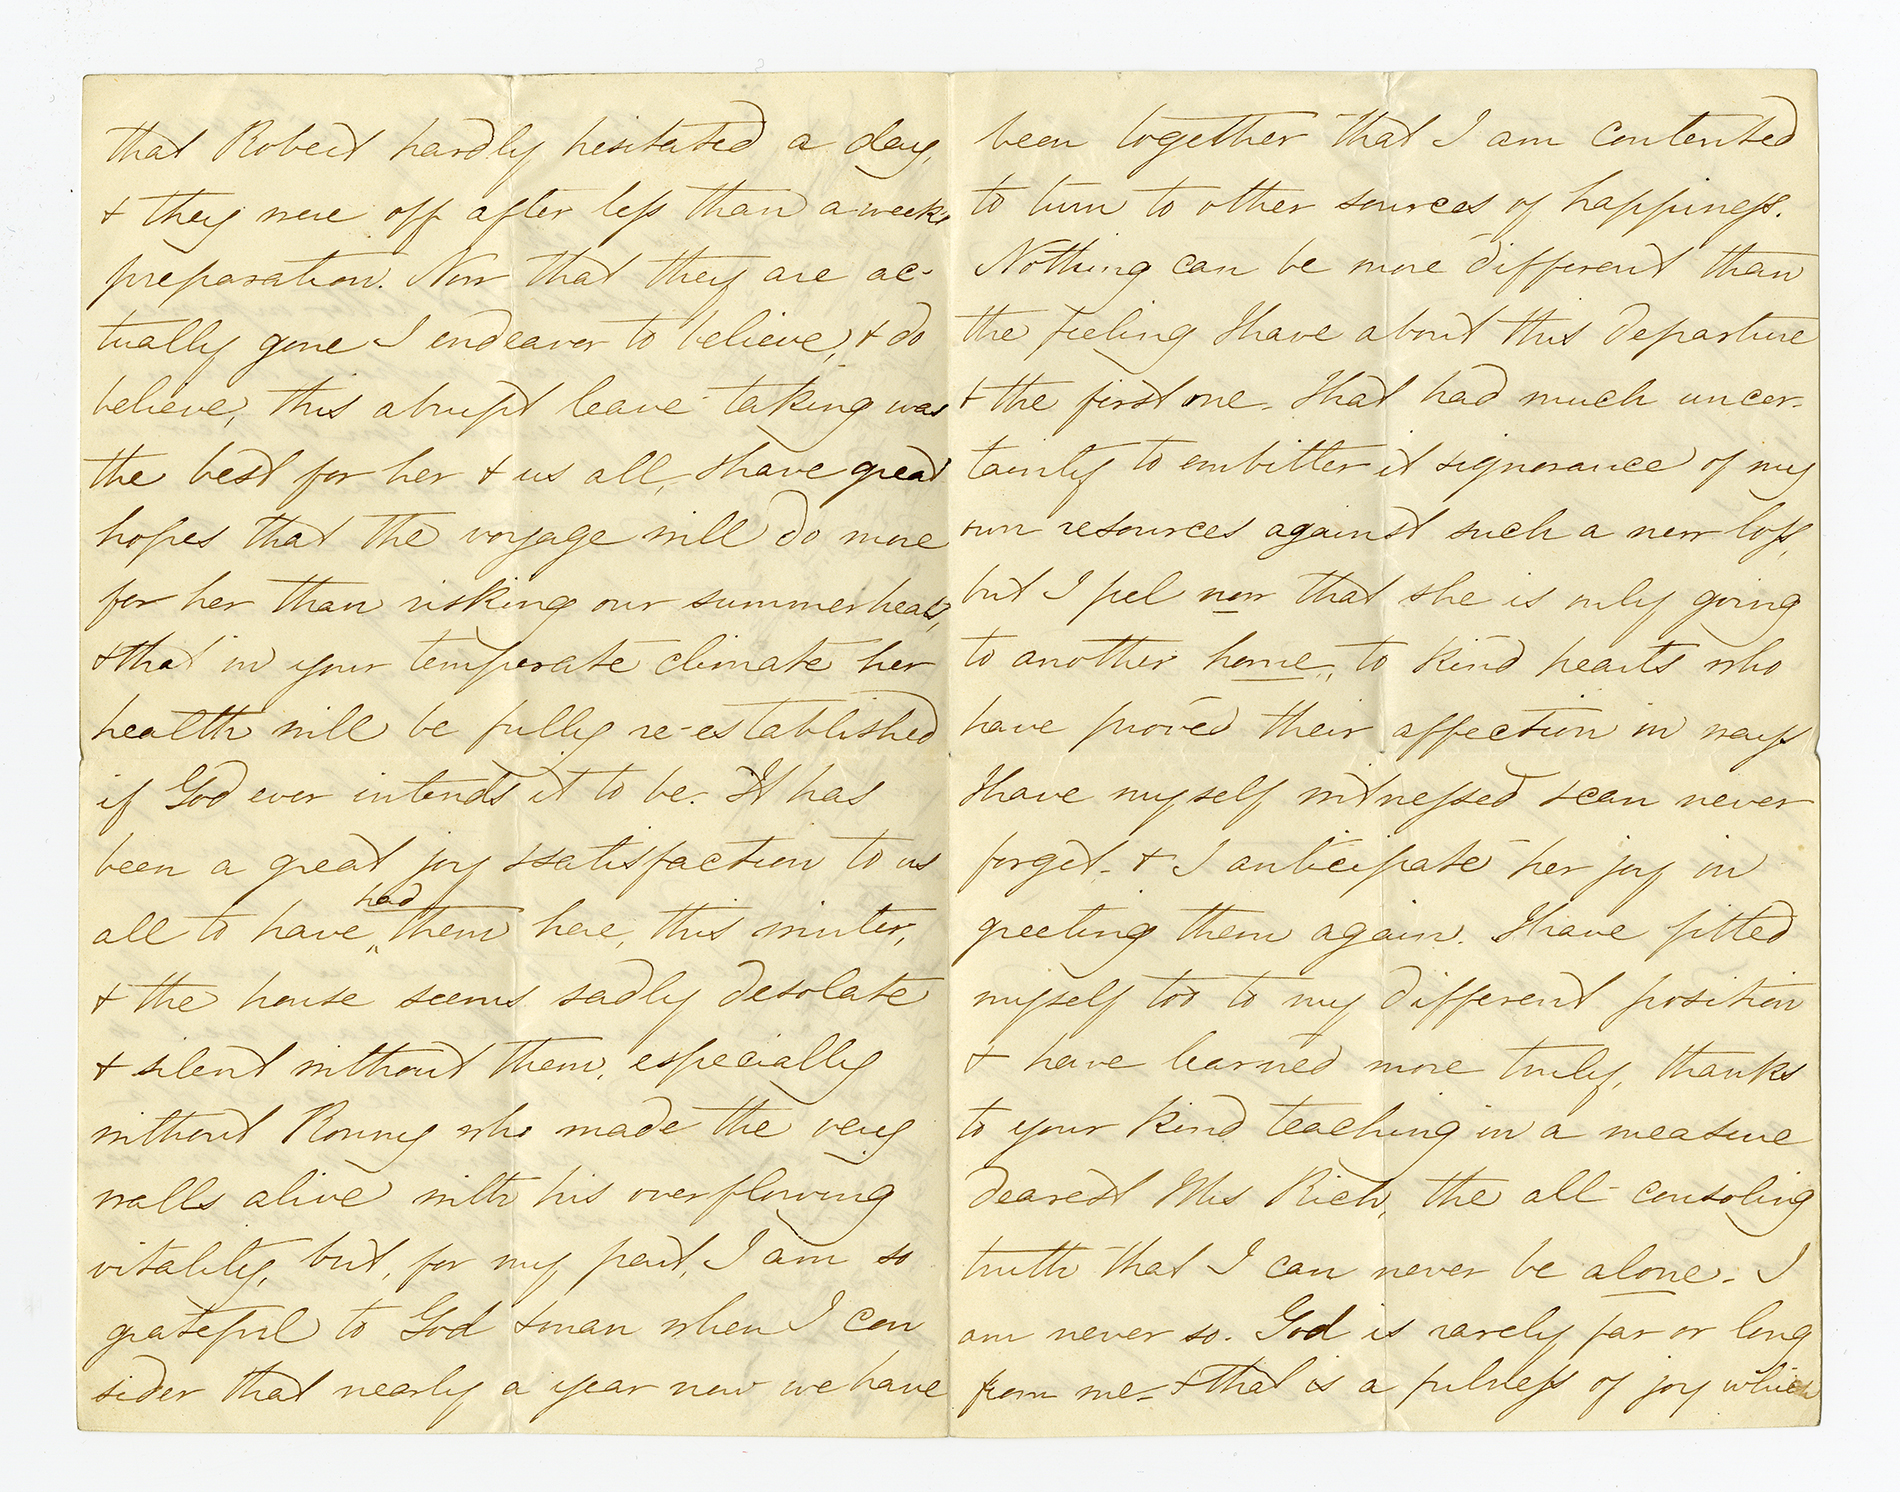 that Robert hardly hesitated a day,
& they were off after less than a week's
preparation. Now that they are ac-
tually gone I endeavor to believe, & do
believe, this abrupt leave-taking was
the best for her & us all, I have great
hopes that the voyage will do more
for her than risking our summer heats,
& that in your temperate climate her
health will be fully re-established
if God ever intends it to be. It has
been a great joy & satisfaction to us
all to have had them here, this winter,
& the house seems sadly desolate
& silent without them, especially
without Ronny who made the very
walls alive with his overflowing
vitality, but, for my part, I am so
grateful to God & man when I con
sider that nearly a year now we have
been together that I am contented
to turn to other sources of happiness.
Nothing can be more different than
the feeling I have about this departure
& the first one. That had much uncer-
tainty to embitter it & ignorance of my
own resources against such a new loss,
but I feel now that she is only going
to another home, to kind hearts who
have proved their affection in ways
I have myself witnessed & can never
forget. & I anticipate her joy in
greeting them again. I have fitted
myself too to my different position
& have learned more truly, thanks
to your kind teaching in a measure
dearest Mrs Rich, the all-consoling
truth that I can never be alone. I
am never so. God is rarely far or long
from me - & that is a fulness of joy which